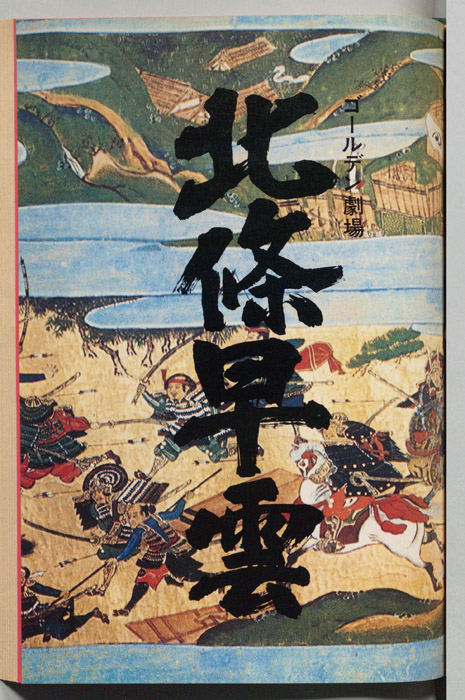 ゴールデン劇場
北條早雲